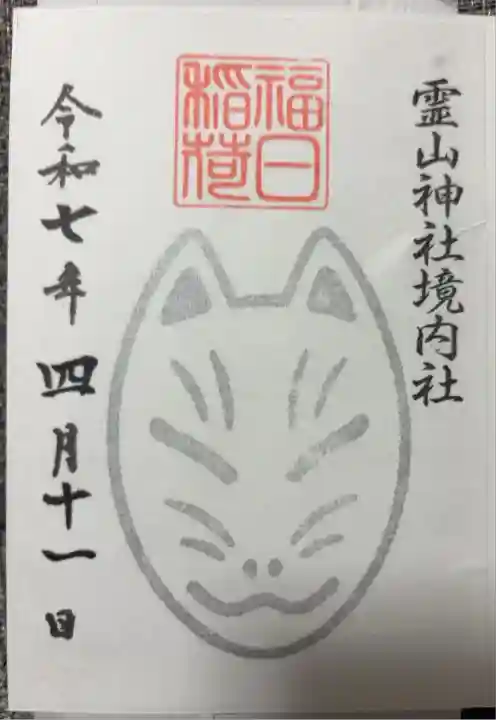 霊山神社境内社
福日
稲荷
令和七年四月十一日